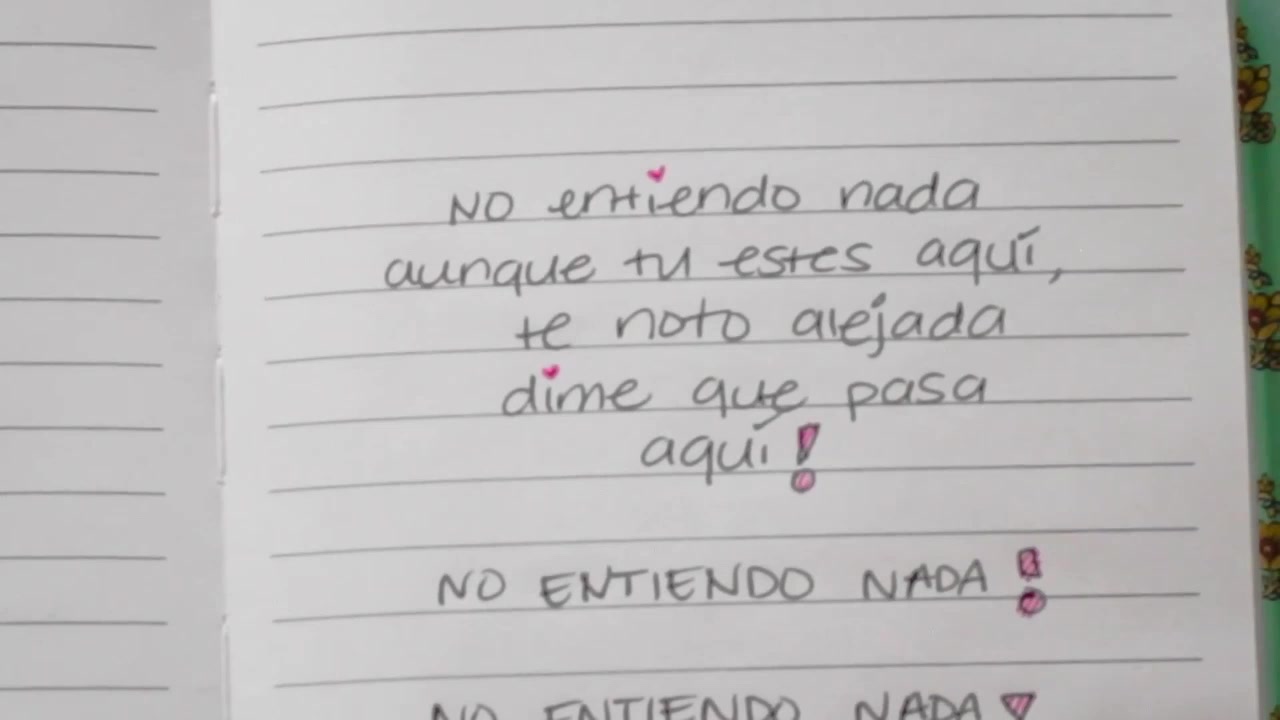 NO entiendo nada
aunque tu estes aquí,
te noto alejada
dime que pasa
aquí!
NO ENTIENDO NADA!
NO ENTIENDO NADA